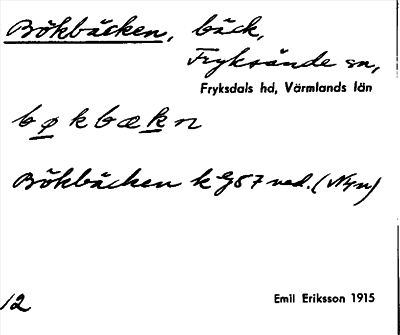 Bökbäcken, bäck,
Fryksände sn,
Fryksdals hd, Värmlands län
bøkbækn
Bökbäcken k G87 ned. (Nyn)
12
Emil Eriksson 1915